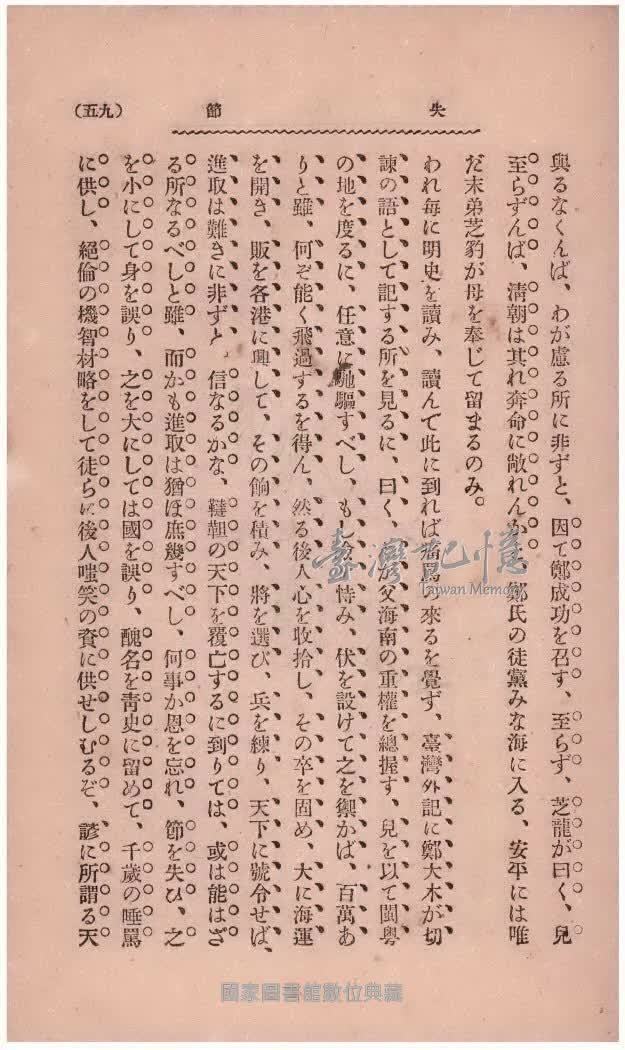 失節
(五九)
與るなくんば、わが慮る所に非ずと、因て鄭成功を召す、至らず、芝龍が曰く、兒
至らずんば、清朝は其れ奔命に敝れんか、鄭氏の徒黨みな海に入る、安平には唯
だ末弟芝豹が母を奉じて留まるのみ。
われ每に明史を讀み、讀んで此に到れば の來るを覺ず、臺灣外記に鄭大木が切
諫の語として記する所を見るに、曰く、 が父海南の重權を總握す、兒を以て閩粤
の地を度るに、任意に馳驅すべし、もし を恃み、伏を設けて之を禦かば、百萬あ
りと雖、何ぞ能く飛過するを得ん、然る後人心を收拾し、その卒を固め、大に海運
を開き、販を各港に興して、その餉を積み、將を選び、兵を練り、天下に號令せば、
進取は難きに非ずと 信なるかな、韃靼の天下を覆亡するに到りては、或は能はざ
る所なるべしと雖、而かも進取は猶ほ庶幾すべし、何事か恩を忘れ、節を失ひ、之
を小にして身を誤り、之を大にしては國を誤り、醜名を靑史に留めて、千歲の唾罵
に供し、絕倫の機智材略をして徒らに後人嗤笑の資に供せしむるぞ、諺に所謂る天
臺灣記憶
Taiwan Memory
國家圖書館數位典藏